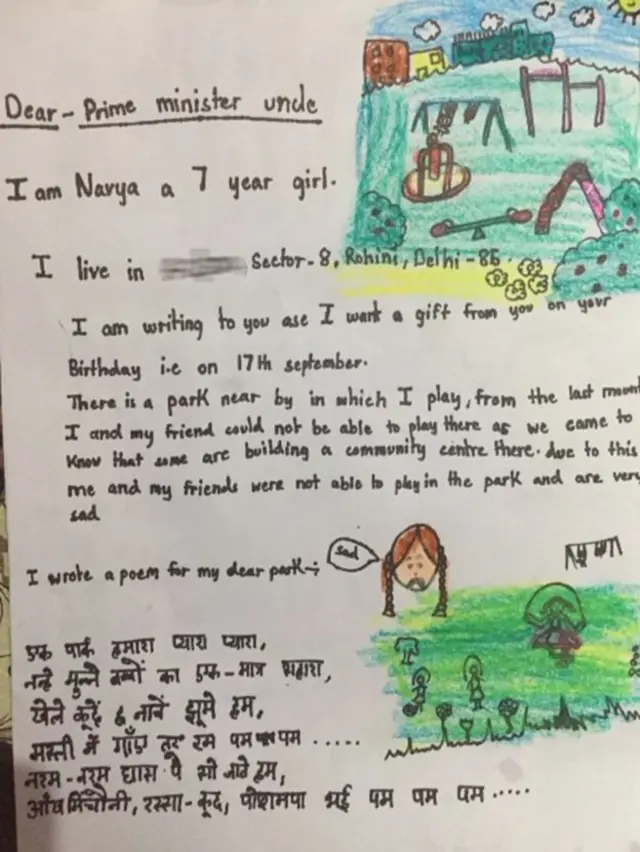 Dear - Prime minister uncle
I am Navya a 7 year girl.
I live in Sector-8, Rohini, Delhi-85.
I am writing to you ase I want a gift from you on your
Birthday i.e on 17th september.
There is a park near by in which I play, from the last mount
I and my friend could not be able to play there as we came to
Know that some are building a community centre there. due to this
me and my friends were not able to play in the park and are very
sad
sad
I wrote a poem for my dear park-:
एक पार्क हमारा प्यारा प्यारा,
नन्हे मुन्ने बच्चों का एक-मात्र सहारा,
खेले कूदें नाचें झूमे हम,
मस्ती में गाँए रम पम पम .....
नरम-नरम घास पे भी हम,
आँख मिचौनी, रस्सा-कूद, पोशमपा भई पम पम पम .....